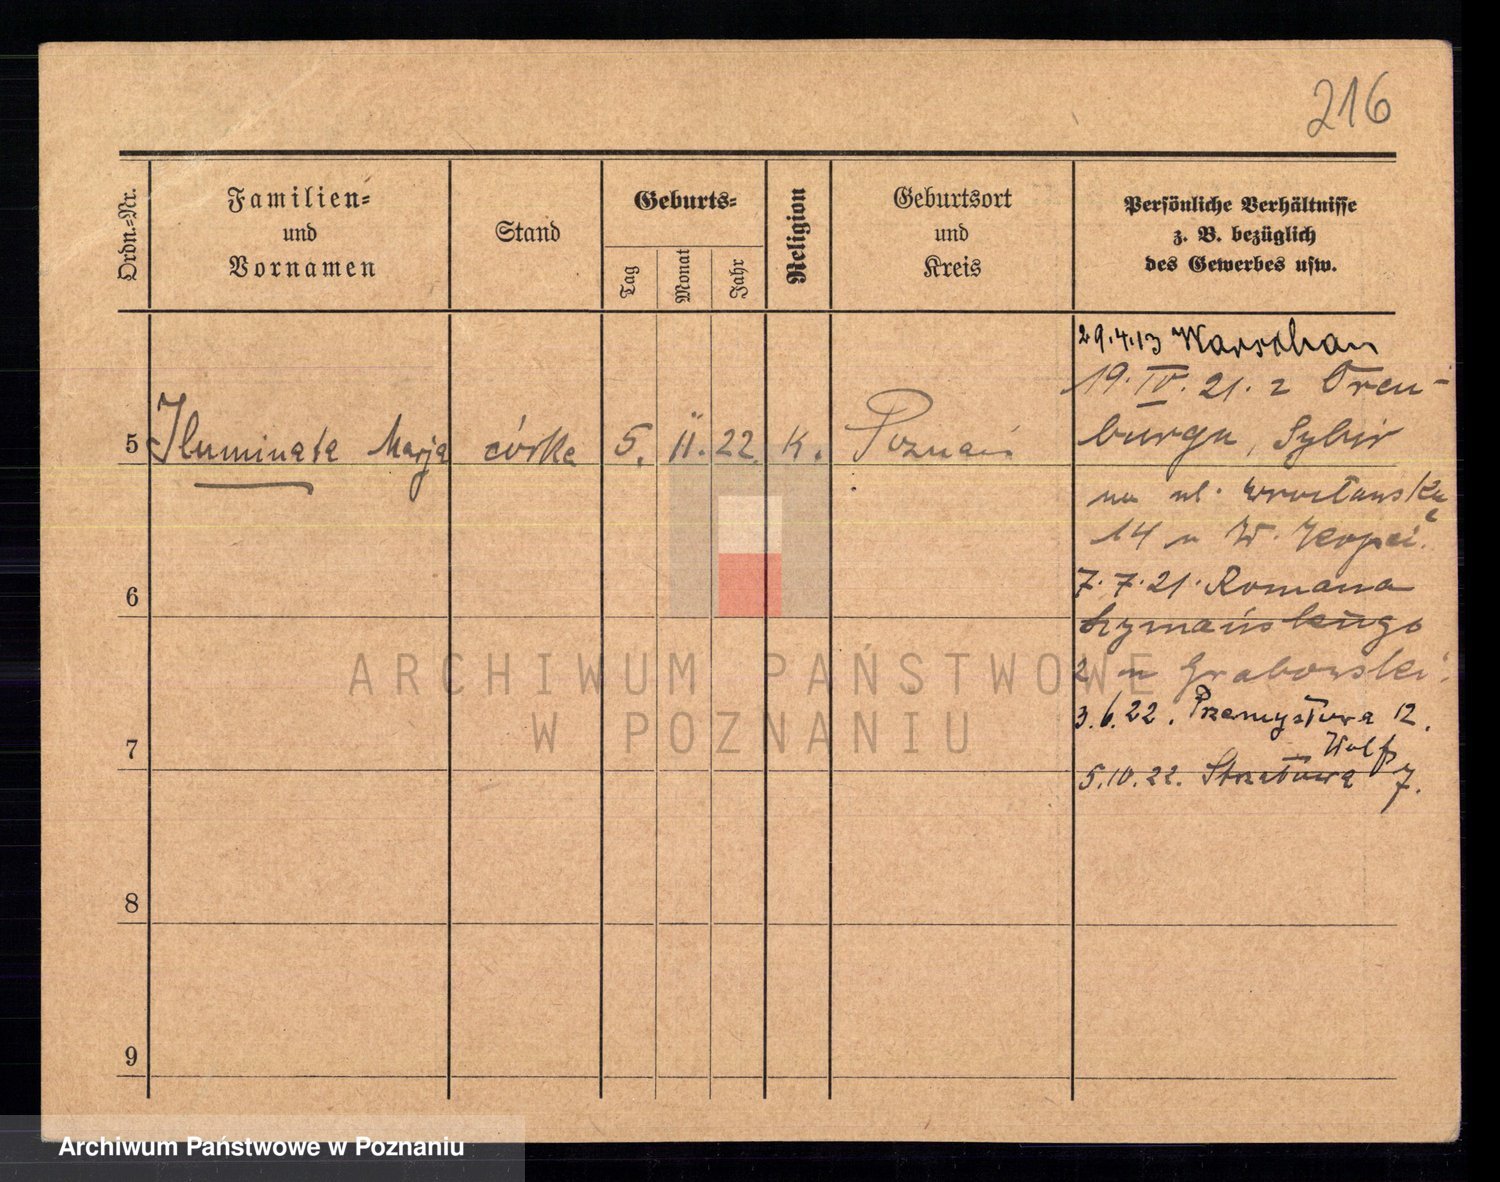 216
Ordn.-Nr.
Familien-
und
Vornamen
Stand
Geburts-
Tag
Monat
Jahr
Religion
Geburtsort
und
Kreis
Persönliche Verhältnisse
z. B. bezüglich
des Gewerbes usw.
29.4.13 Warschau
19. IV. 21. z Oren-
burga, Sybir
5 Iluminata Marja córka 5. II. 22. K. Poznań
na ul. Wrocławską
14 u W.
7. 7. 21. Romana
6
Szymańskiego
2 u Grabowski
3.6.22. Przemysłowa 12.
7
Wolf
5.10.22. Strzałowa 7.
8
9
ARCHIWUM PAŃSTWOWE
W POZNANIU
Archiwum Państwowe w Poznaniu